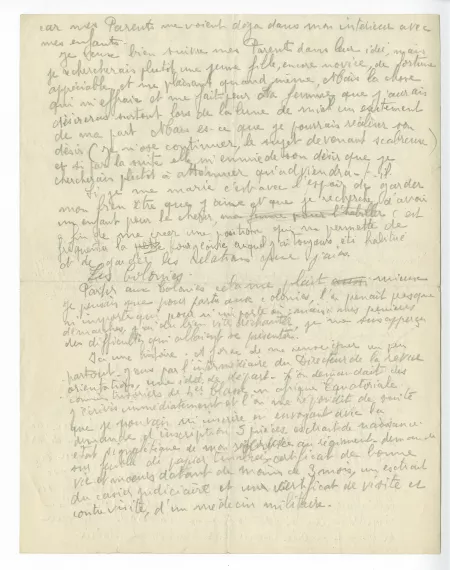 car mes Parents me voient déja dans mon intérieur avec
mes enfants.
je veux bien suivre mes Parents dans leur idée, mais
je rechercherais plutôt une jeune fille, encore novice, de fortune
appréciable, et me plaisant quand même, Mais la chose
qui m'effraie et me fait peur de la femme, que j'aurais
désireras surtout lors de la lune de miel un sentiment
de ma part Mais est-ce que je pourrais réaliser son
désir (je n'ose continuer, le sujet devenant scabreux)
et si par la suite elle m'ennuie de son désir que je
chercherais plutôt à atténuer qu'adjiendra-t-il.
Si je me marie c'est avec l'espoir de garder
mon bien être que j'aime et que je recherche, d'avoir
un enfant pour la chérir, c'est
a fin de me créer une position qui me permette de
fréquenter la
et de garder les relations que j'aime
Les Colonies.
Partir aux colonies cela me plait mieux
je pensais que pour partir aux colonies, l'on prenait presque
n'importe qui, pour ni mes premières
démarches, je me suis vite je me suis aperçu
des difficultés qui allaient se présenter.
J'ai une histoire. A force de me renseigner un peu
partout j'eus par l'intermédiaire du Directeur de la revue
orientation, une idée de départ. L'on demandait des
commis de en Afrique Equatoriale
j'écrivis immédiatement et l'on me répondit de suite
que je pouvais m'inscrire en envoyant avec la
demande d'inscription 5 pièces extrait de naissance
état signalétique de ma au régiment demande
sur feuille de papier timbrée, certificat de bonne
vie et moeurs datant de moins de 3 mois, un extrait
du casier judiciaire et un certificat de visite et
contre visite, d'un médecin militaire.